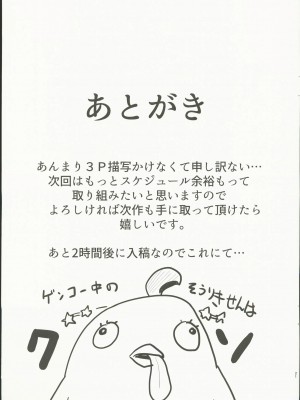 あとがき
あんまり３Ｐ描写かけなくて申し訳ない…
次回はもっとスケジュール余裕もって
取り組みたいと思いますので
よろしければ次作も手に取って頂けたら
嬉しいです。
あと2時間後に入稿なのでこれにて…
ゲンコー中の
そうりきせんは
クソ